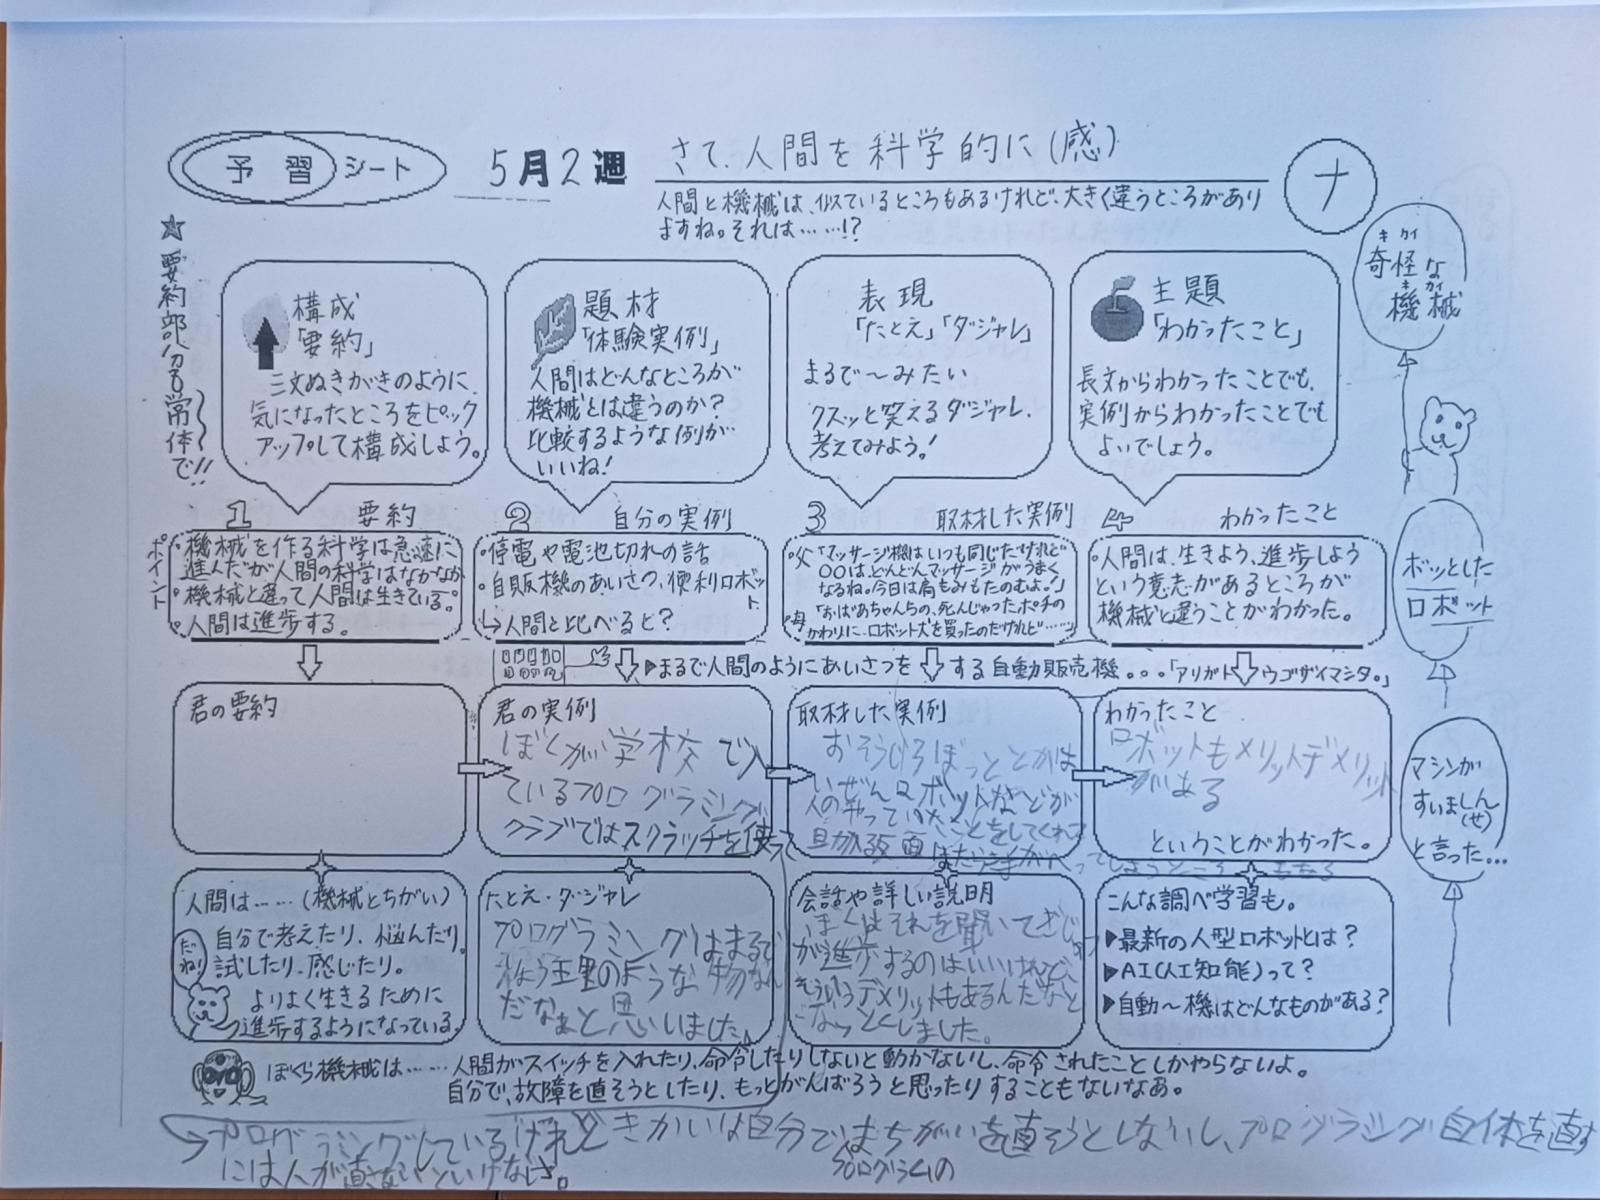 予習シート
5月2週
さて、人間を科学的に(感)
ナ
人間と機械は、似ているところもあるけれど、大きく違うところがあり
ますね。それは……!?
★要約部分も常体で!!
構成
「要約」
三文ぬきがきのように
気になったところをピック
アップして構成しよう。
題材
「体験実例」
人間はどんなところが
機械とは違うのか?
比較するような例が
いいね!
表現
「たとえ」「ダジャレ」
まるで〜みたい
クスッと笑えるダジャレ、
考えてみよう!
主題
「わかったこと」
長文からわかったことでも、
実例からわかったことでも
よいでしょう。
キカイ
奇怪な
キカイ
機械
ボッとした
ロボット
マシンが
すいましん
(せ)
と言った…
ポイント
1 要約
・機械を作る科学は急速に
進んだが人間の科学はなかなか
・機械と違って人間は生きている。
・人間は進歩する。
2 自分の実例
・停電や電池切れの話
・自販機のあいさつ、便利ロボット
↳人間と比べると?
3 取材した実例
・父「マッサージ機はいつも同じだけれど
〇〇は、どんどんマッサージがうまく
なるね。今日は肩もみもたのむよ!」
・母「おばあちゃんちの、死んじゃったポチの
かわりに、ロボット犬を買ったのだけれど……」
4 わかったこと
・人間は、生きよう、進歩しよう
という意志があるところが
機械と違うことがわかった。
▶まるで人間のようにあいさつをする自動販売機。。。「アリガトウゴザイマシタ。」
君の要約
君の実例
ぼくが学校で入
ているプログラミング
クラブではスクラッチを使って
取材した実例
おそうじろぼっととかは
いぜんロボットなどが
人のやっていたことをしてくれて
助かる反面はたらき手がへってしまうところもある
わかったこと
ロボットもメリットデメリット
がある
ということがわかった。
人間は……(機械とちがい)
自分で考えたり、悩んだり、
試したり、感じたり。
よりよく生きるために
進歩するようになっている。
だね!
たとえ・ダジャレ
プログラミングはまるで
のような物なん
だなぁと思いました。
会話や詳しい説明
ぼくはそれを聞いてぎじゅつ
が進歩するのはいいけれど、
そういうデメリットもあるんだなと
しました。
こんな調べ学習も。
▶最新の人型ロボットとは?
▶AI(人工知能)って?
▶自動〜機はどんなものがある?
ぼくら機械は……人間がスイッチを入れたり、命令したりしないと動かないし、命令されたことしかやらないよ。
自分で、故障を直そうとしたり、もっとがんばろうと思ったりすることもないなあ。
プログラミングしているけれどきかいは自分でまちがいを直そうとしないし、プログラミング自体を直す
には人が直さないといけなさ。
プログラムの